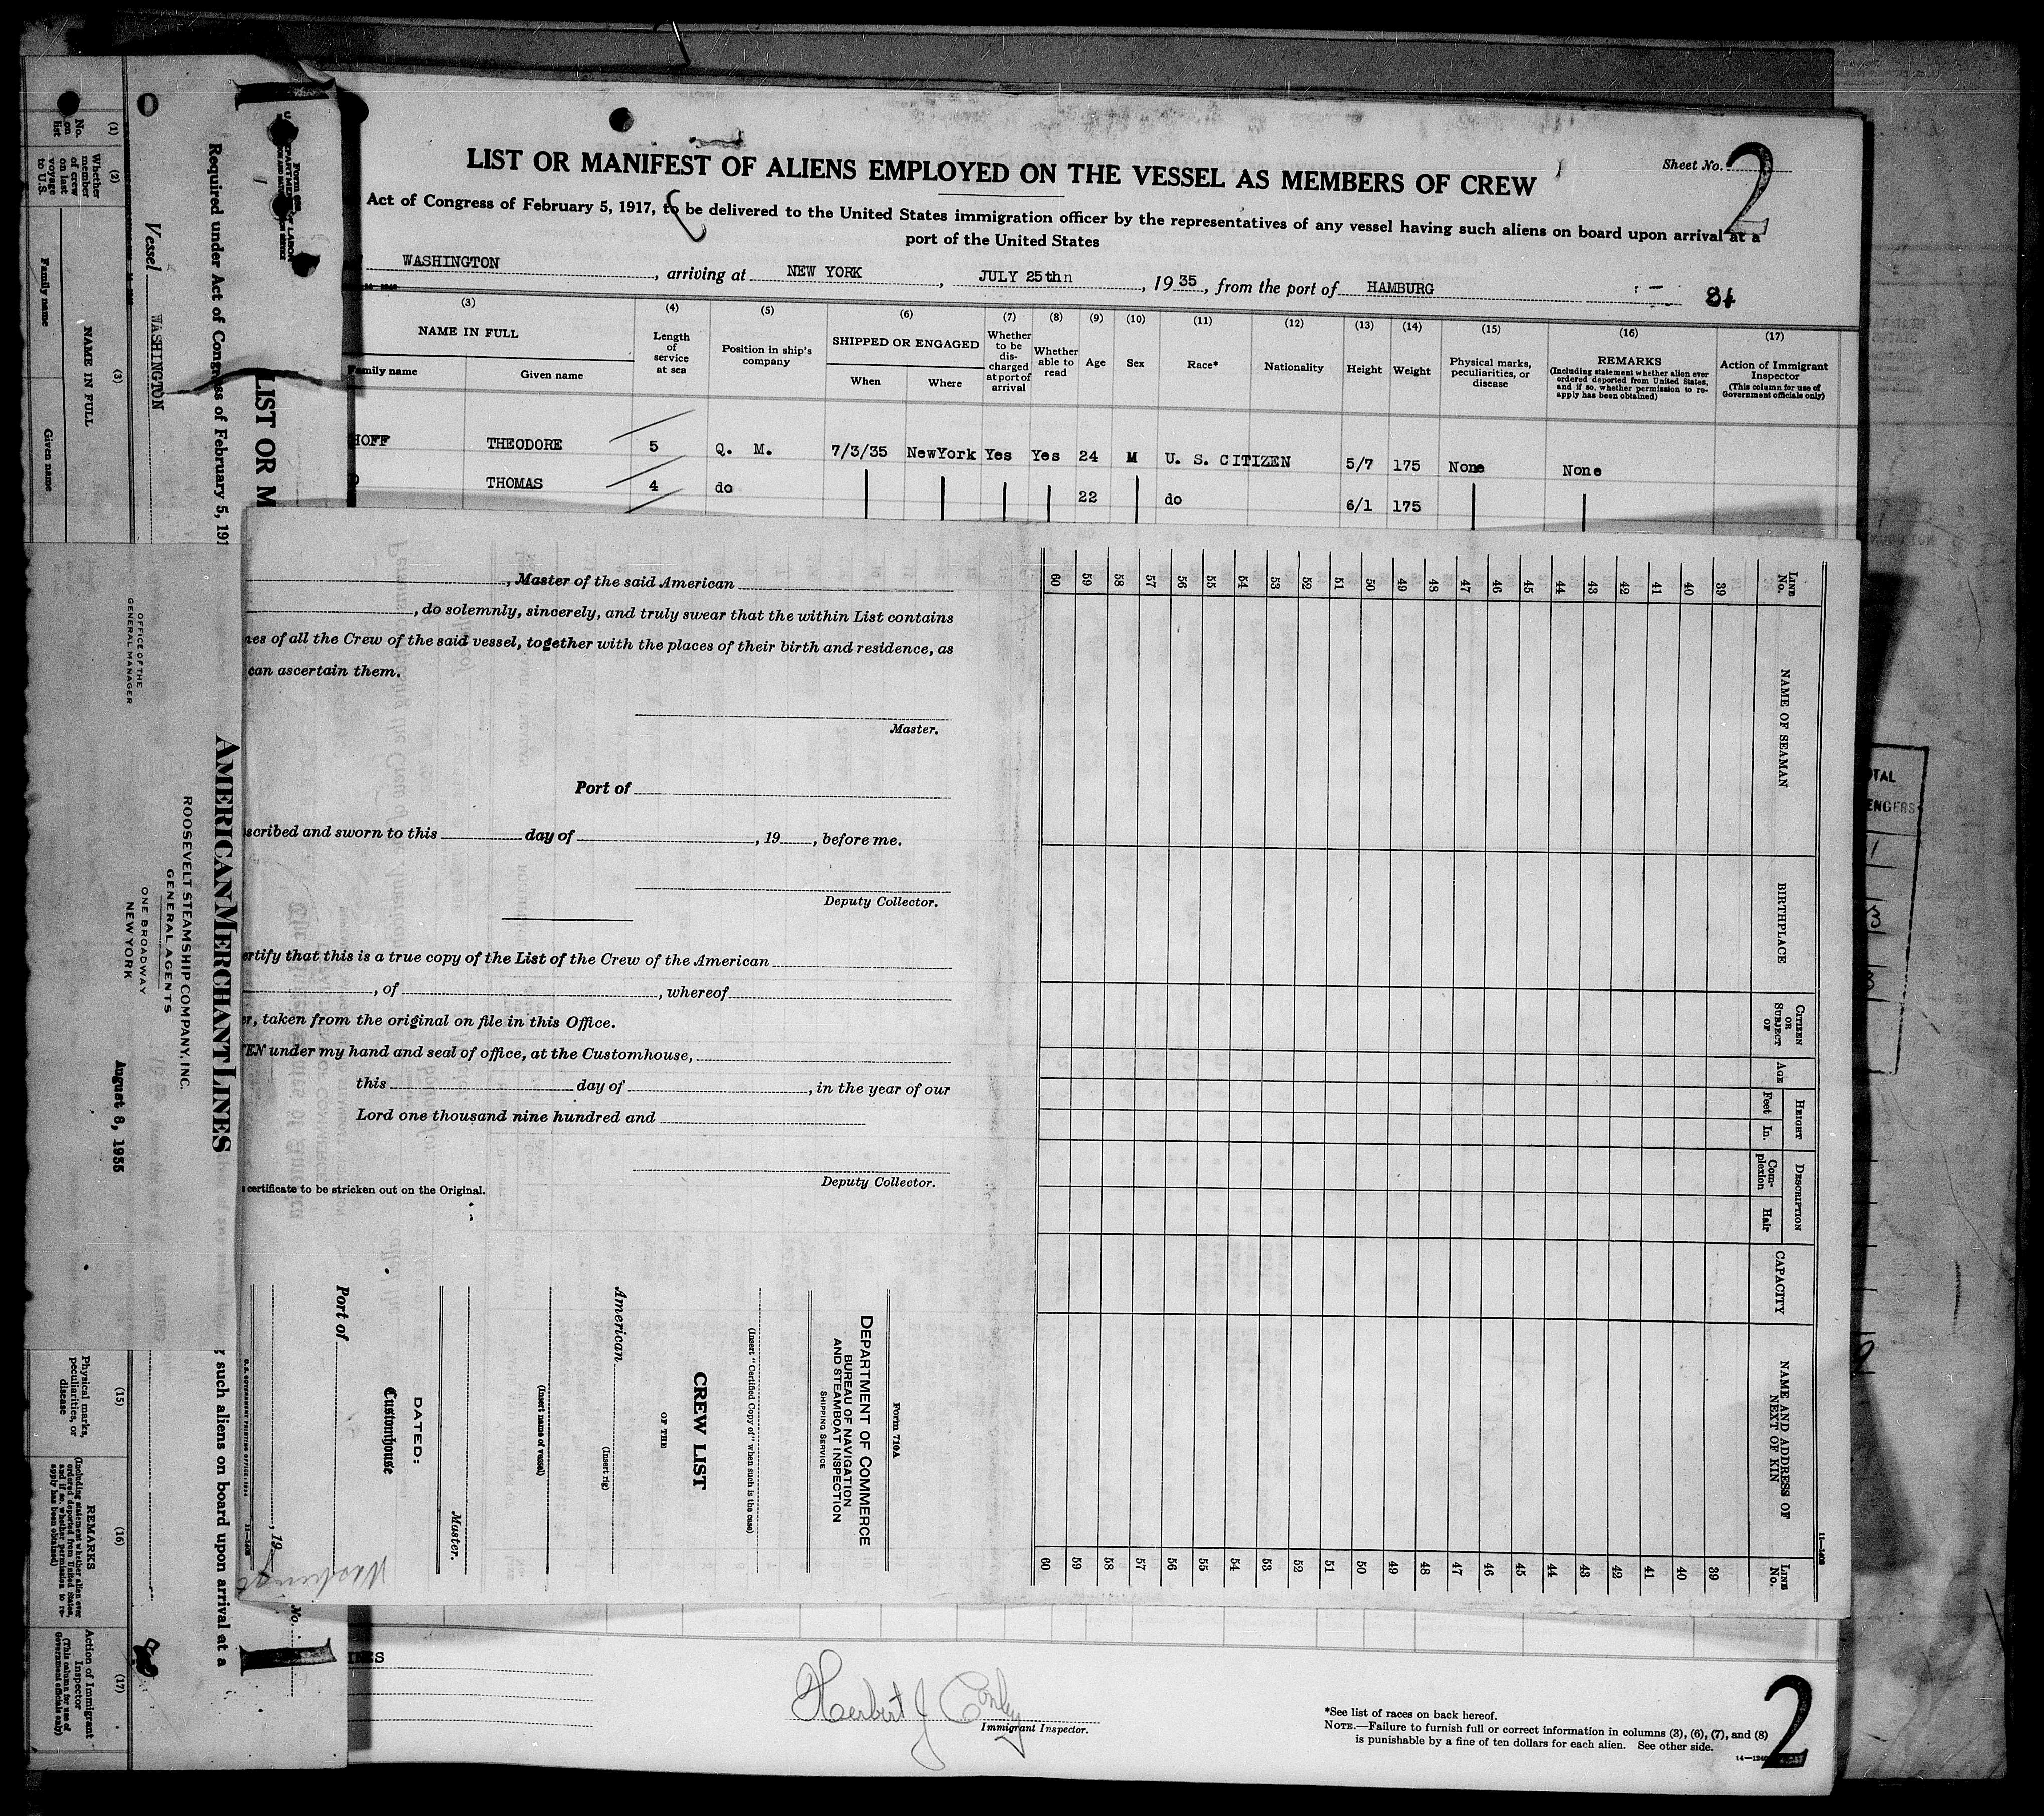 LIST OR MANIFEST OF ALIENS EMPLOYED ON THE VESSEL AS MEMBERS OF CREW
Sheet No. 2
Act of Congress of February 5, 1917, to be delivered to the United States immigration officer by the representatives of any vessel having such aliens on board upon arrival at a
port of the United States
WASHINGTON, arriving at NEW YORK, JULY 25th, 1935, from the port of HAMBURG
81
(3) (4) (5) (6) (7) (8) (9) (10) (11) (12) (13) (14) (15) (16) (17)
NAME IN FULL
Family name
Given name
Length of service at sea
Position in ship's company
SHIPPED OR ENGAGED
When
Where
Whether to be discharged at port of arrival
Whether able to read
Age
Sex
Race*
Nationality
Height
Weight
Physical marks, peculiarities, or disease
REMARKS
(Including statement whether alien ever
ordered deported from United States,
and if so, whether permission to re-
apply has been obtained)
Action of Immigrant
Inspector
(This column for use of
Government officials only)
HOFF THEODORE 5 Q. M. 7/3/35 NewYork Yes Yes 24 M U. S. CITIZEN 5/7 175 None None
THOMAS 4 do 22 do 6/1 175
, Master of the said American
, do solemnly, sincerely, and truly swear that the within List contains
nes of all the Crew of the said vessel, together with the places of their birth and residence, as
can ascertain them.
Master.
Port of
scribed and sworn to this day of , 19 , before me.
Deputy Collector.
ertify that this is a true copy of the List of the Crew of the American
, of , whereof
er, taken from the original on file in this Office.
EN under my hand and seal of office, at the Customhouse,
this day of , in the year of our
Lord one thousand nine hundred and
Deputy Collector.
certificate to be stricken out on the Original.
Form 710A
DEPARTMENT OF COMMERCE
BUREAU OF NAVIGATION
AND STEAMBOAT INSPECTION
SHIPPING SERVICE
(Insert "Certified Copy of" when such is the case)
CREW LIST
OF THE
American
(Insert rig)
(Insert name of vessel)
Master.
DATED:
Customhouse
Port of
, 19
U.S. GOVERNMENT PRINTING OFFICE
LINE No.
NAME OF SEAMAN
BIRTHPLACE
CITIZEN OR SUBJECT OF
AGE
HEIGHT
Feet
In.
DESCRIPTION
Complexion
Hair
CAPACITY
NAME AND ADDRESS OF
NEXT OF KIN
LINE No.
60 59 58 57 56 55 54 53 52 51 50 49 48 47 46 45 44 43 42 41 40 39
60 59 58 57 56 55 54 53 52 51 50 49 48 47 46 45 44 43 42 41 40 39
Herbert J Conley
Immigrant Inspector.
*See list of races on back hereof.
NOTE.—Failure to furnish full or correct information in columns (3), (6), (7), and (8)
is punishable by a fine of ten dollars for each alien. See other side.
14—1240
2
Required under Act of Congress of February 5, 191
LIST OR M
Vessel WASHINGTON
(1) No. on list
(2) Whether member of crew on last voyage to U.S.
(3) NAME IN FULL
Family name
Given name
AMERICAN MERCHANT LINES
ROOSEVELT STEAMSHIP COMPANY, INC.
GENERAL AGENTS
ONE BROADWAY
NEW YORK
OFFICE OF THE
GENERAL MANAGER
August 8, 1935
such aliens on board upon arrival at a
No.
(15) Physical marks, peculiarities, or disease
(16) REMARKS
(Including statement whether alien ever
ordered deported from United States,
and if so, whether permission to re-
apply has been obtained)
(17) Action of Immigrant
Inspector
(This column for use of
Government officials only)